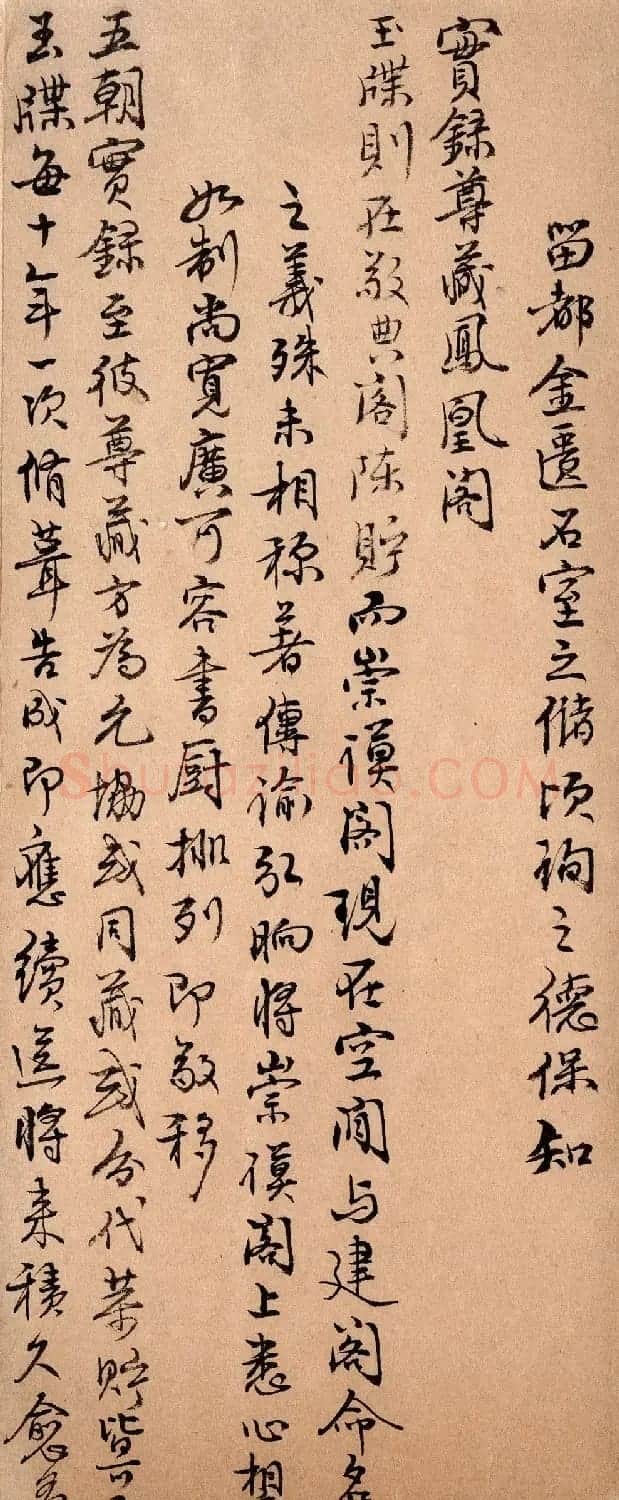 留都金匱石室之儲頃詢之德保知
實録尊藏鳳凰閣
玉牒則在敬典閣陳貯而崇謨閣現在空閒与建閣命名
之義殊未相称著傳諭弘晌將崇謨閣上悉心相
如制尚寬廣可容書厨排列即敬移
五朝實録至彼尊藏方為允協或同藏或分代恭貯皆可
玉牒每十年一次脩葺告成即應續送將来積久愈多
ShufaZiliao.COM